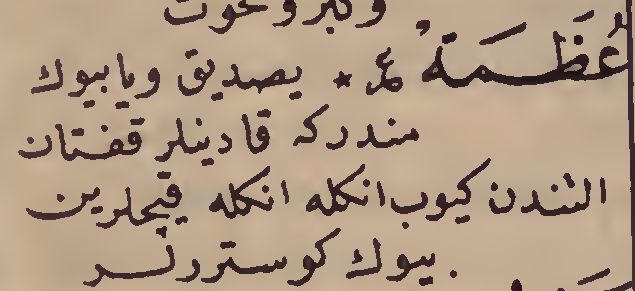 وكبر ونخوت
عُظَمَةُ ع * يصديق ويا بيوك
مندركه قادينلر قفتان
التندن كيوب انكله انكله قيچلرين
بيوك كوسترلر